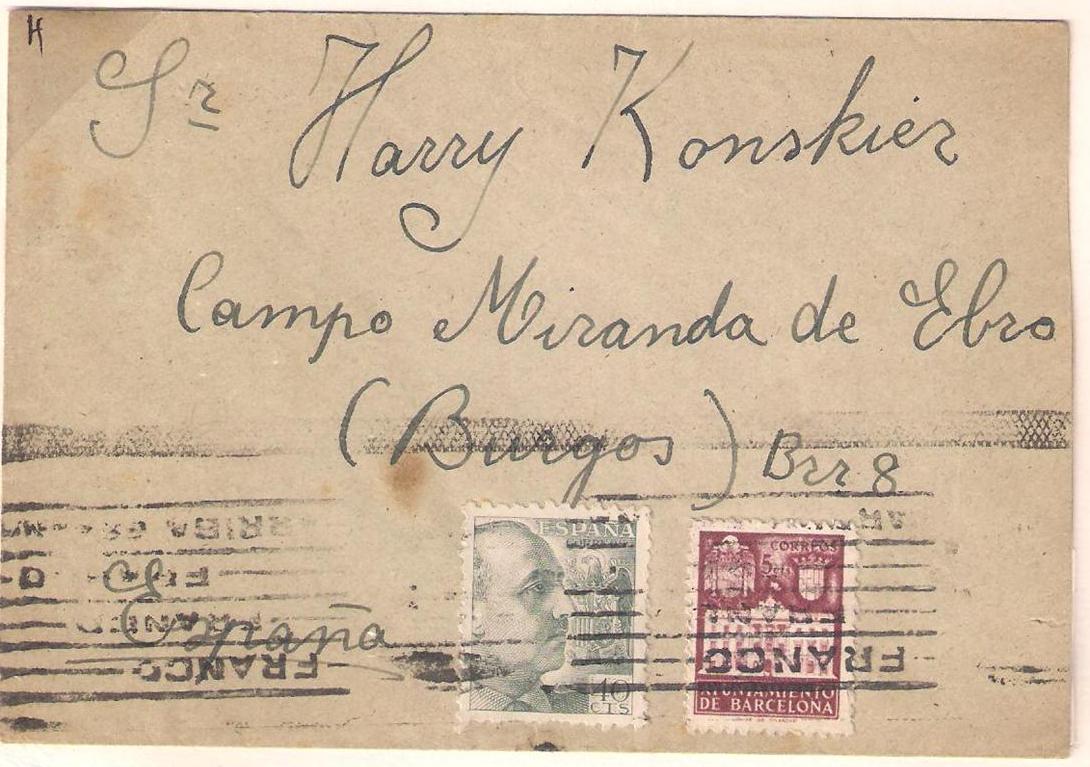 H
Sr Harry Konskier
Campo Miranda de Ebro
(Burgos) Brr 8
España
ESPAÑA
40
CTS
CORREOS
5 cts
AYUNTAMIENTO
DE BARCELONA
FRANCO
FRANCO
FRANCO
ARRIBA ESPAÑA